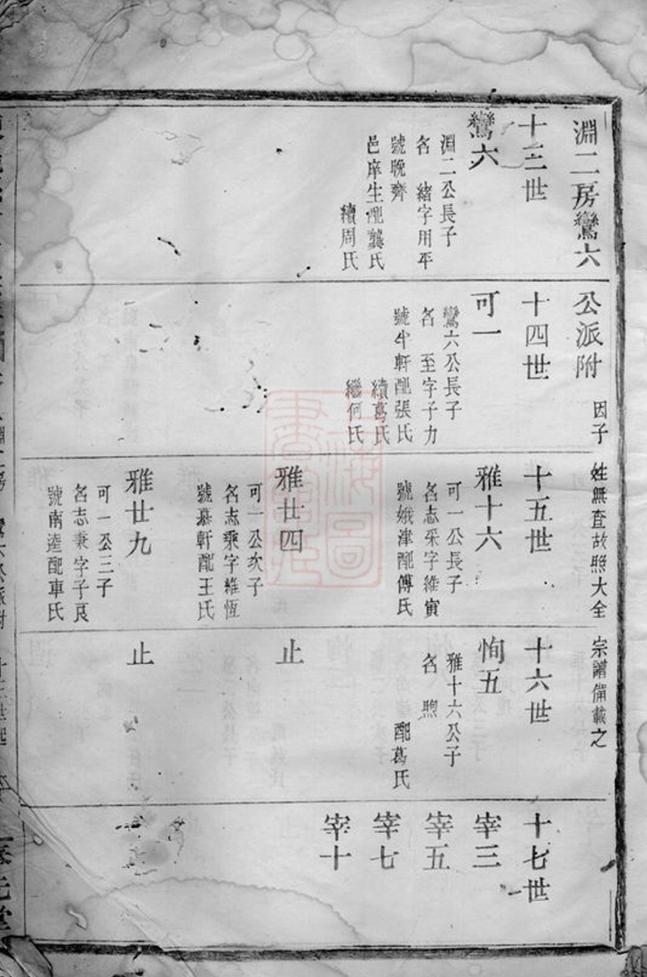 淵二房鸞六公派附 因子姓無查故照大全宗譜備載之
十三世
鸞六
淵二公長子
名緒字用平
號晚齊
邑庠生配龔氏
續周氏
十四世
可一
鸞六公長子
名至字子力
號半軒配張氏
續葛氏
繼何氏
十五世
雅十六
可一公長子
名志采字維寅
號娥津配傅氏
雅廿四
可一公次子
名志乘字維恆
號慕軒配王氏
雅廿九
可一公三子
名志秉字子良
號南逵配車氏
十六世
恂五
雅十六公子
名煦
配葛氏
止
止
十七世
宰三
宰五
宰七
宰十